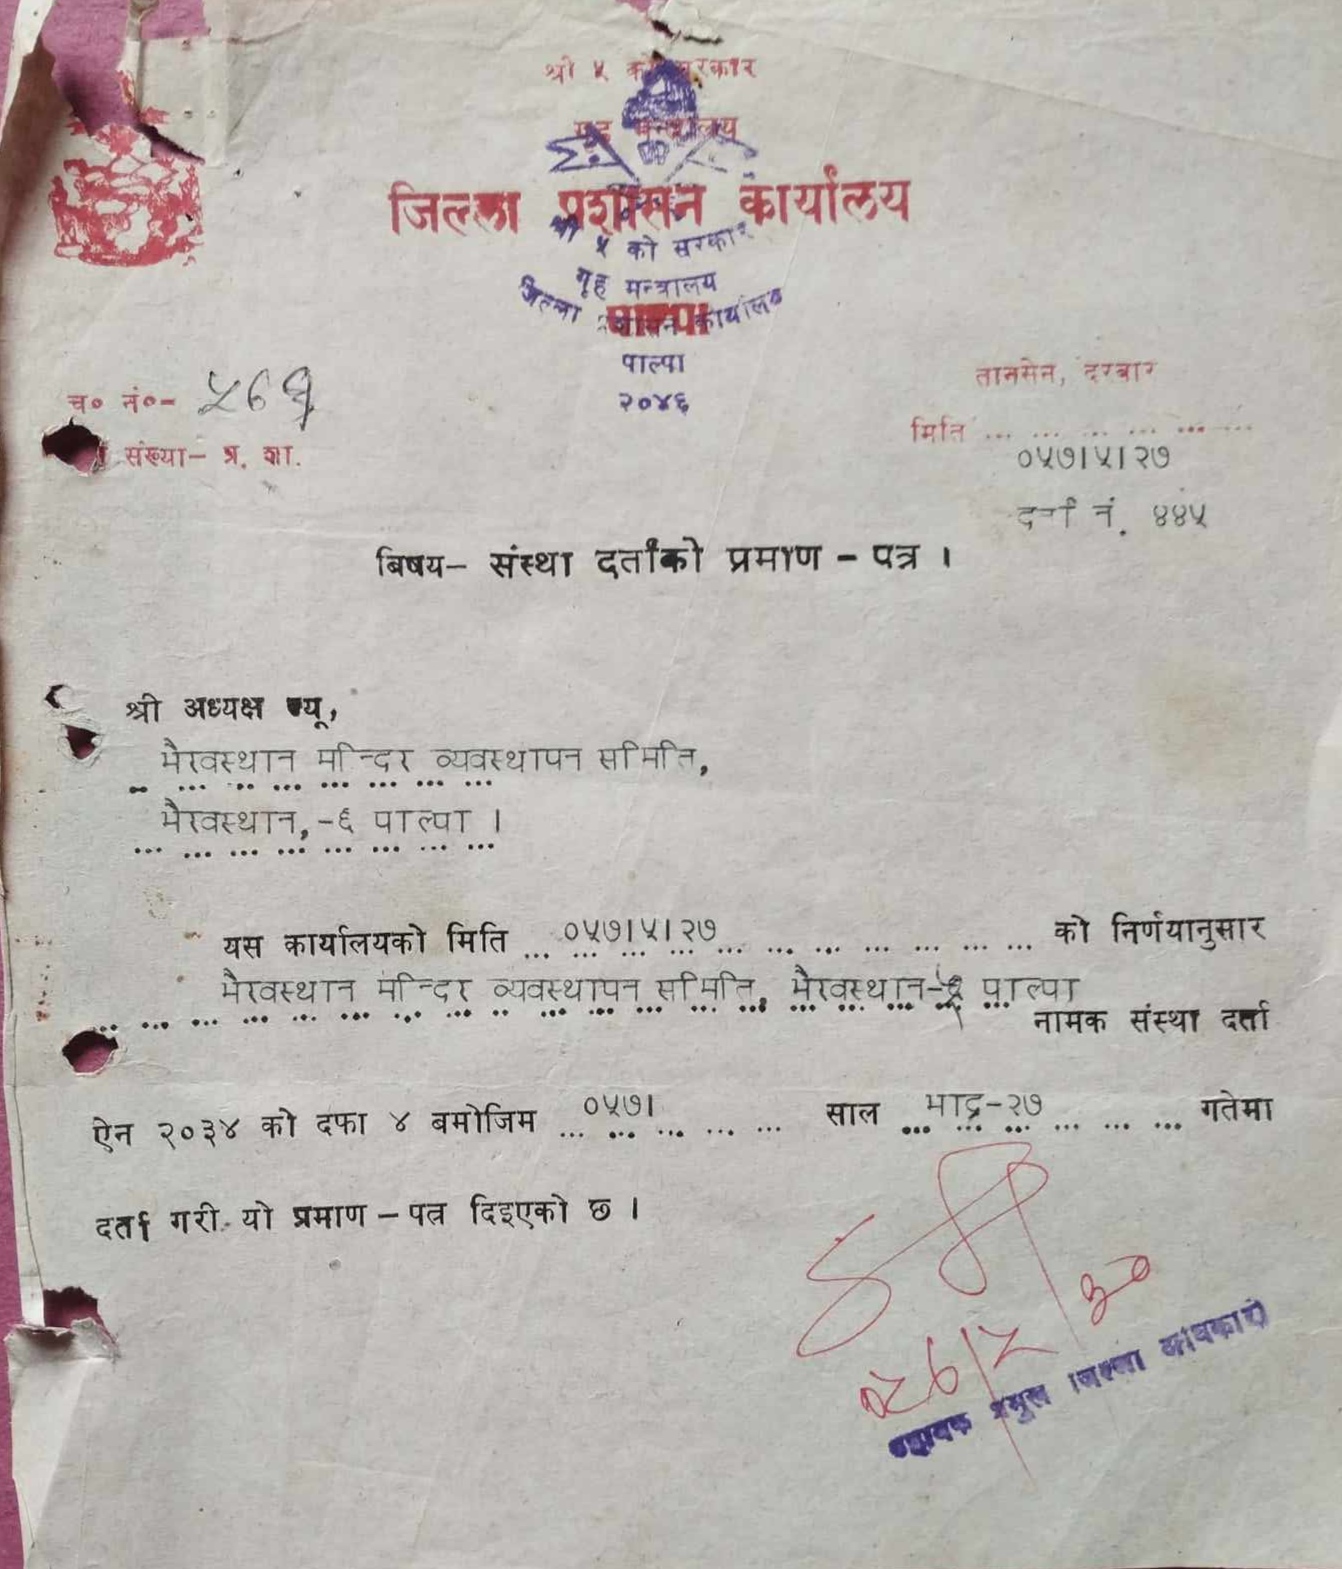 श्री ५ को सरकार
गृह मन्त्रालय
जिल्ला प्रशासन कार्यालय
श्री ५ को सरकार
गृह मन्त्रालय
जिल्ला प्रशासन कार्यालय
पाल्पा
पाल्पा
२०४६
तानसेन, दरबार
च० नं०-
मिति ... ... ... ... ... ...
०५७।५।२७
संख्या- प्र. शा.
दर्ता नं. ४४५
बिषय- संस्था दर्ताको प्रमाण - पत्र ।
श्री अध्यक्ष ज्यू,
भैरवस्थान मन्दिर व्यवस्थापन समिति,
भैरवस्थान,-६ पाल्पा ।
यस कार्यालयको मिति ... ०५७।५।२७ ... को निर्णयानुसार
भैरवस्थान मन्दिर व्यवस्थापन समिति, भैरवस्थान- पाल्पा
नामक संस्था दर्ता
ऐन २०३४ को दफा ४ बमोजिम ०५७। साल भाद्र-२७ गतेमा
दर्ता गरी यो प्रमाण - पत्र दिइएको छ ।
सहायक प्रमुख जिल्ला अधिकारी